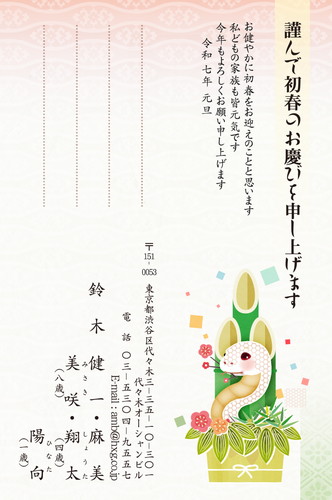 謹んで初春のお慶びを申し上げます
お健やかに初春をお迎えのことと思います
私どもの家族も皆元気です
今年もよろしくお願い申し上げます
令和七年 元旦
〒151-0053
東京都渋谷区代々木三-三五-一〇-三〇一
代々木オーシャンビル
電話 〇三-五三〇四-九五五七
E-mail:amb@hxg.co.jp
鈴木 健一・麻美
美咲・翔太
みさき しょうた
(八歳) (四歳)
陽向
ひなた
(一歳)